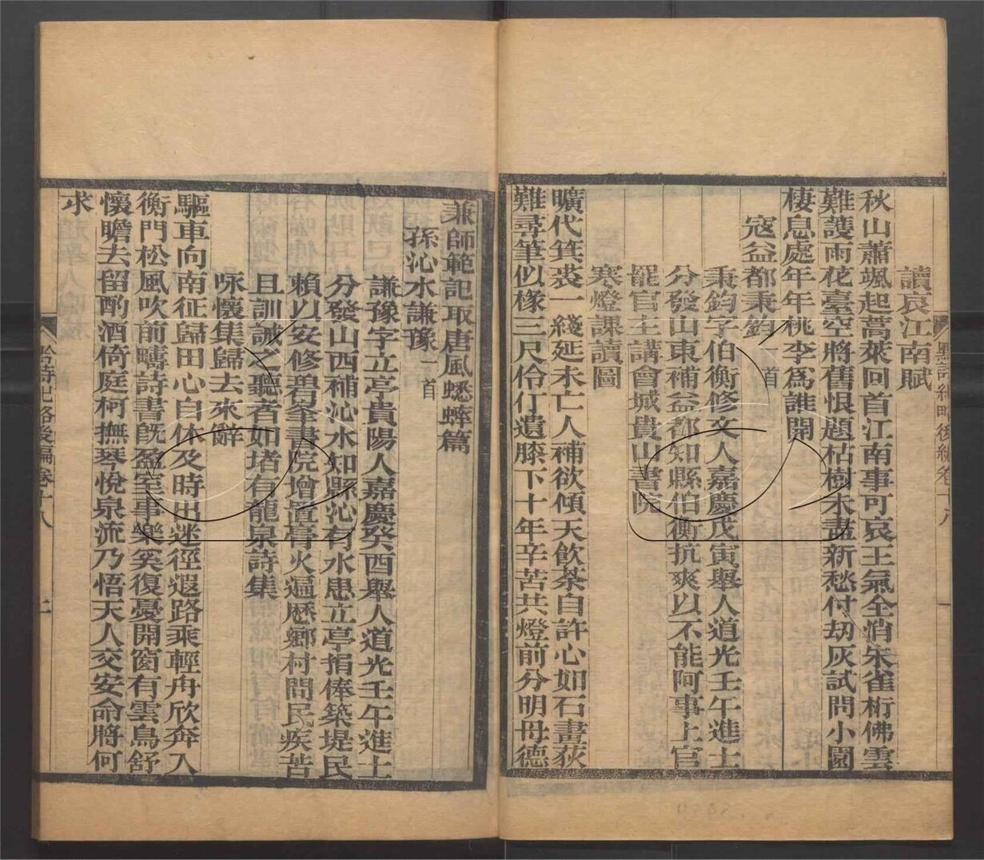 讀哀江南賦
秋山蕭颯起蒿萊回首江南事可哀王氣全消朱雀桁佛雲
難護雨花臺空將舊恨題枯樹未盡新愁付劫灰試問小園
棲息處年年桃李為誰開
寇益都秉鈞 首
秉鈞字伯衡修文人嘉慶戊寅舉人道光壬午進士
分發山東補益都知縣伯衡抗爽以不能阿事上官
罷官主講會城貴山書院
寒燈課讀圖
曠代箕裘一綫延未亡人補欲傾天飲茶自許心如石畫荻
難尋筆似椽三尺伶仃遺膝下十年辛苦共燈前分明母德
兼師範記取唐風蟋蟀篇
孫沁水謙豫一首
謙豫字立亭貴陽人嘉慶癸酉舉人道光壬午進士
分發山西補沁水知縣沁有水患立亭捐俸築堤民
賴以安修碧峯書院增置膏火遍歷鄉村問民疾苦
且訓誡之聽者如堵有龍泉詩集
詠懷集歸去來辭
驅車向南征歸田心自休及時出迷徑遐路乘輕舟欣奔入
衡門松風吹前疇詩書既盈室事樂奚復憂開窗有雲鳥舒
懷瞻去留酌酒倚庭柯撫琴悅泉流乃悟天人交安命將何
求
黔詩紀略後編卷十八